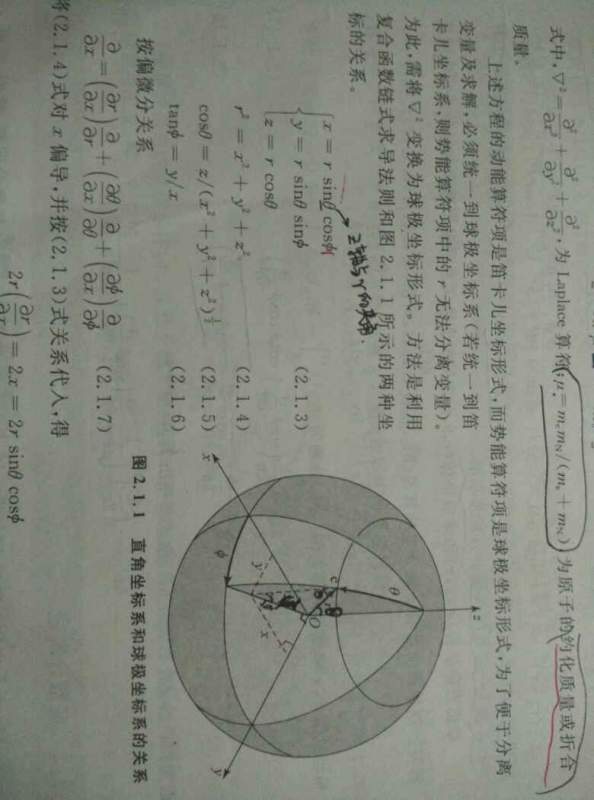 式中，∇² = ∂²/∂x² + ∂²/∂y² + ∂²/∂z²，为 Laplace 算符；μ = mₑm_N/(mₑ + m_N) 为原子的约化质量或折合
质量。
上述方程的动能算符项是笛卡儿坐标形式，而势能算符项是球极坐标形式，为了便于分离
变量及求解，必须统一到球极坐标系(若统一到笛
卡儿坐标系，则势能算符项中的 r 无法分离变量)。
为此，需将 ∇² 变换为球极坐标形式。方法是利用
复合函数链式求导法则和图 2.1.1 所示的两种坐
标的关系。
x = r sinθ cosφ
y = r sinθ sinφ (2.1.3)
z = r cosθ
r² = x² + y² + z² (2.1.4)
cosθ = z/(x² + y² + z²)^½ (2.1.5)
tanφ = y/x (2.1.6)
按偏微分关系
∂/∂x = (∂r/∂x)∂/∂r + (∂θ/∂x)∂/∂θ + (∂φ/∂x)∂/∂φ (2.1.7)
将(2.1.4)式对 x 偏导，并按(2.1.3)式关系代入，得
2r(∂r/∂x) = 2x = 2r sinθ cosφ
z
θ
e
r
O
φ
y
x
x
y
图 2.1.1 直角坐标系和球极坐标系的关系